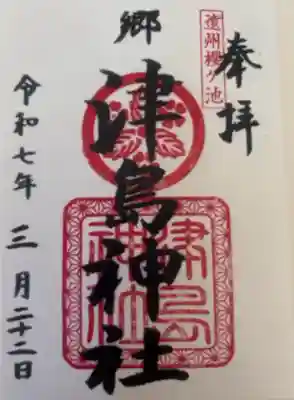 奉拝
遠州櫻ヶ池
郷
津島神社
津島神社
令和七年三月二十二日